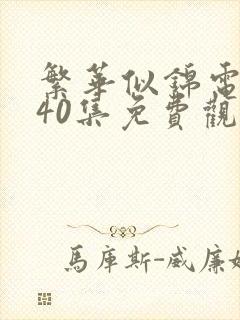 繁華似錦電
40集免費觀
馬庫斯-威廉姆